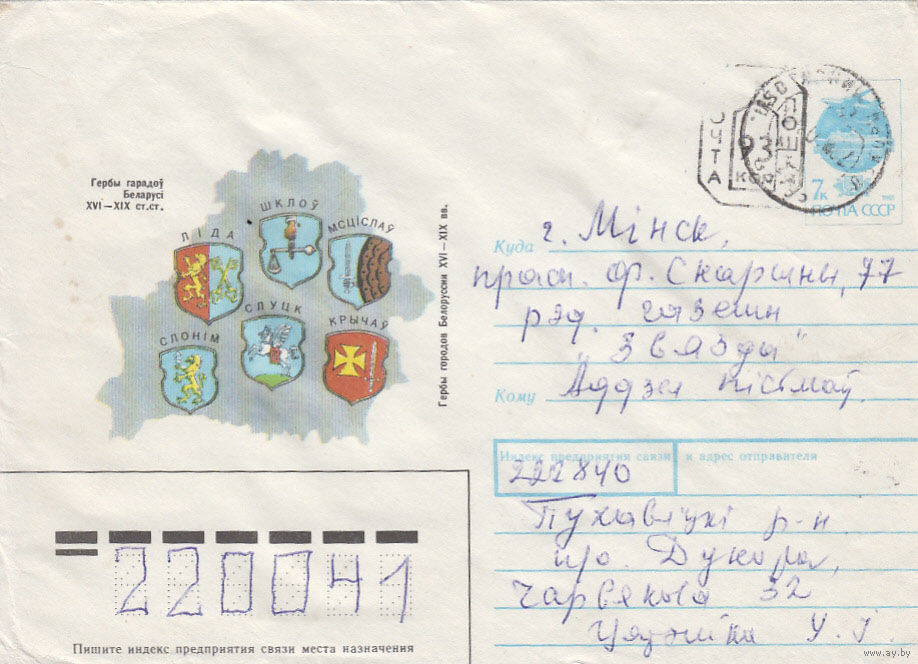 Гербы гарадоў
Беларусі
XVI–XIX ст.ст.
ЛІДА
ШКЛОЎ
МСЦІСЛАЎ
СЛОНІМ
СЛУЦК
КРЫЧАЎ
Гербы городов Белоруссии XVI–XIX вв.
ПОШТА
93 КОП
7к
ПОЧТА СССР
Куда г. Мінск,
прасп. Ф. Скарыны, 77
рэд. газеты
"Звязды"
Кому Аддзел пісьмаў.
Индекс предприятия связи и адрес отправителя
222840
Пухавіцкі р-н
Дукора,
Чарвякова 32
У. І.
220041
Пишите индекс предприятия связи места назначения
www.ay.by